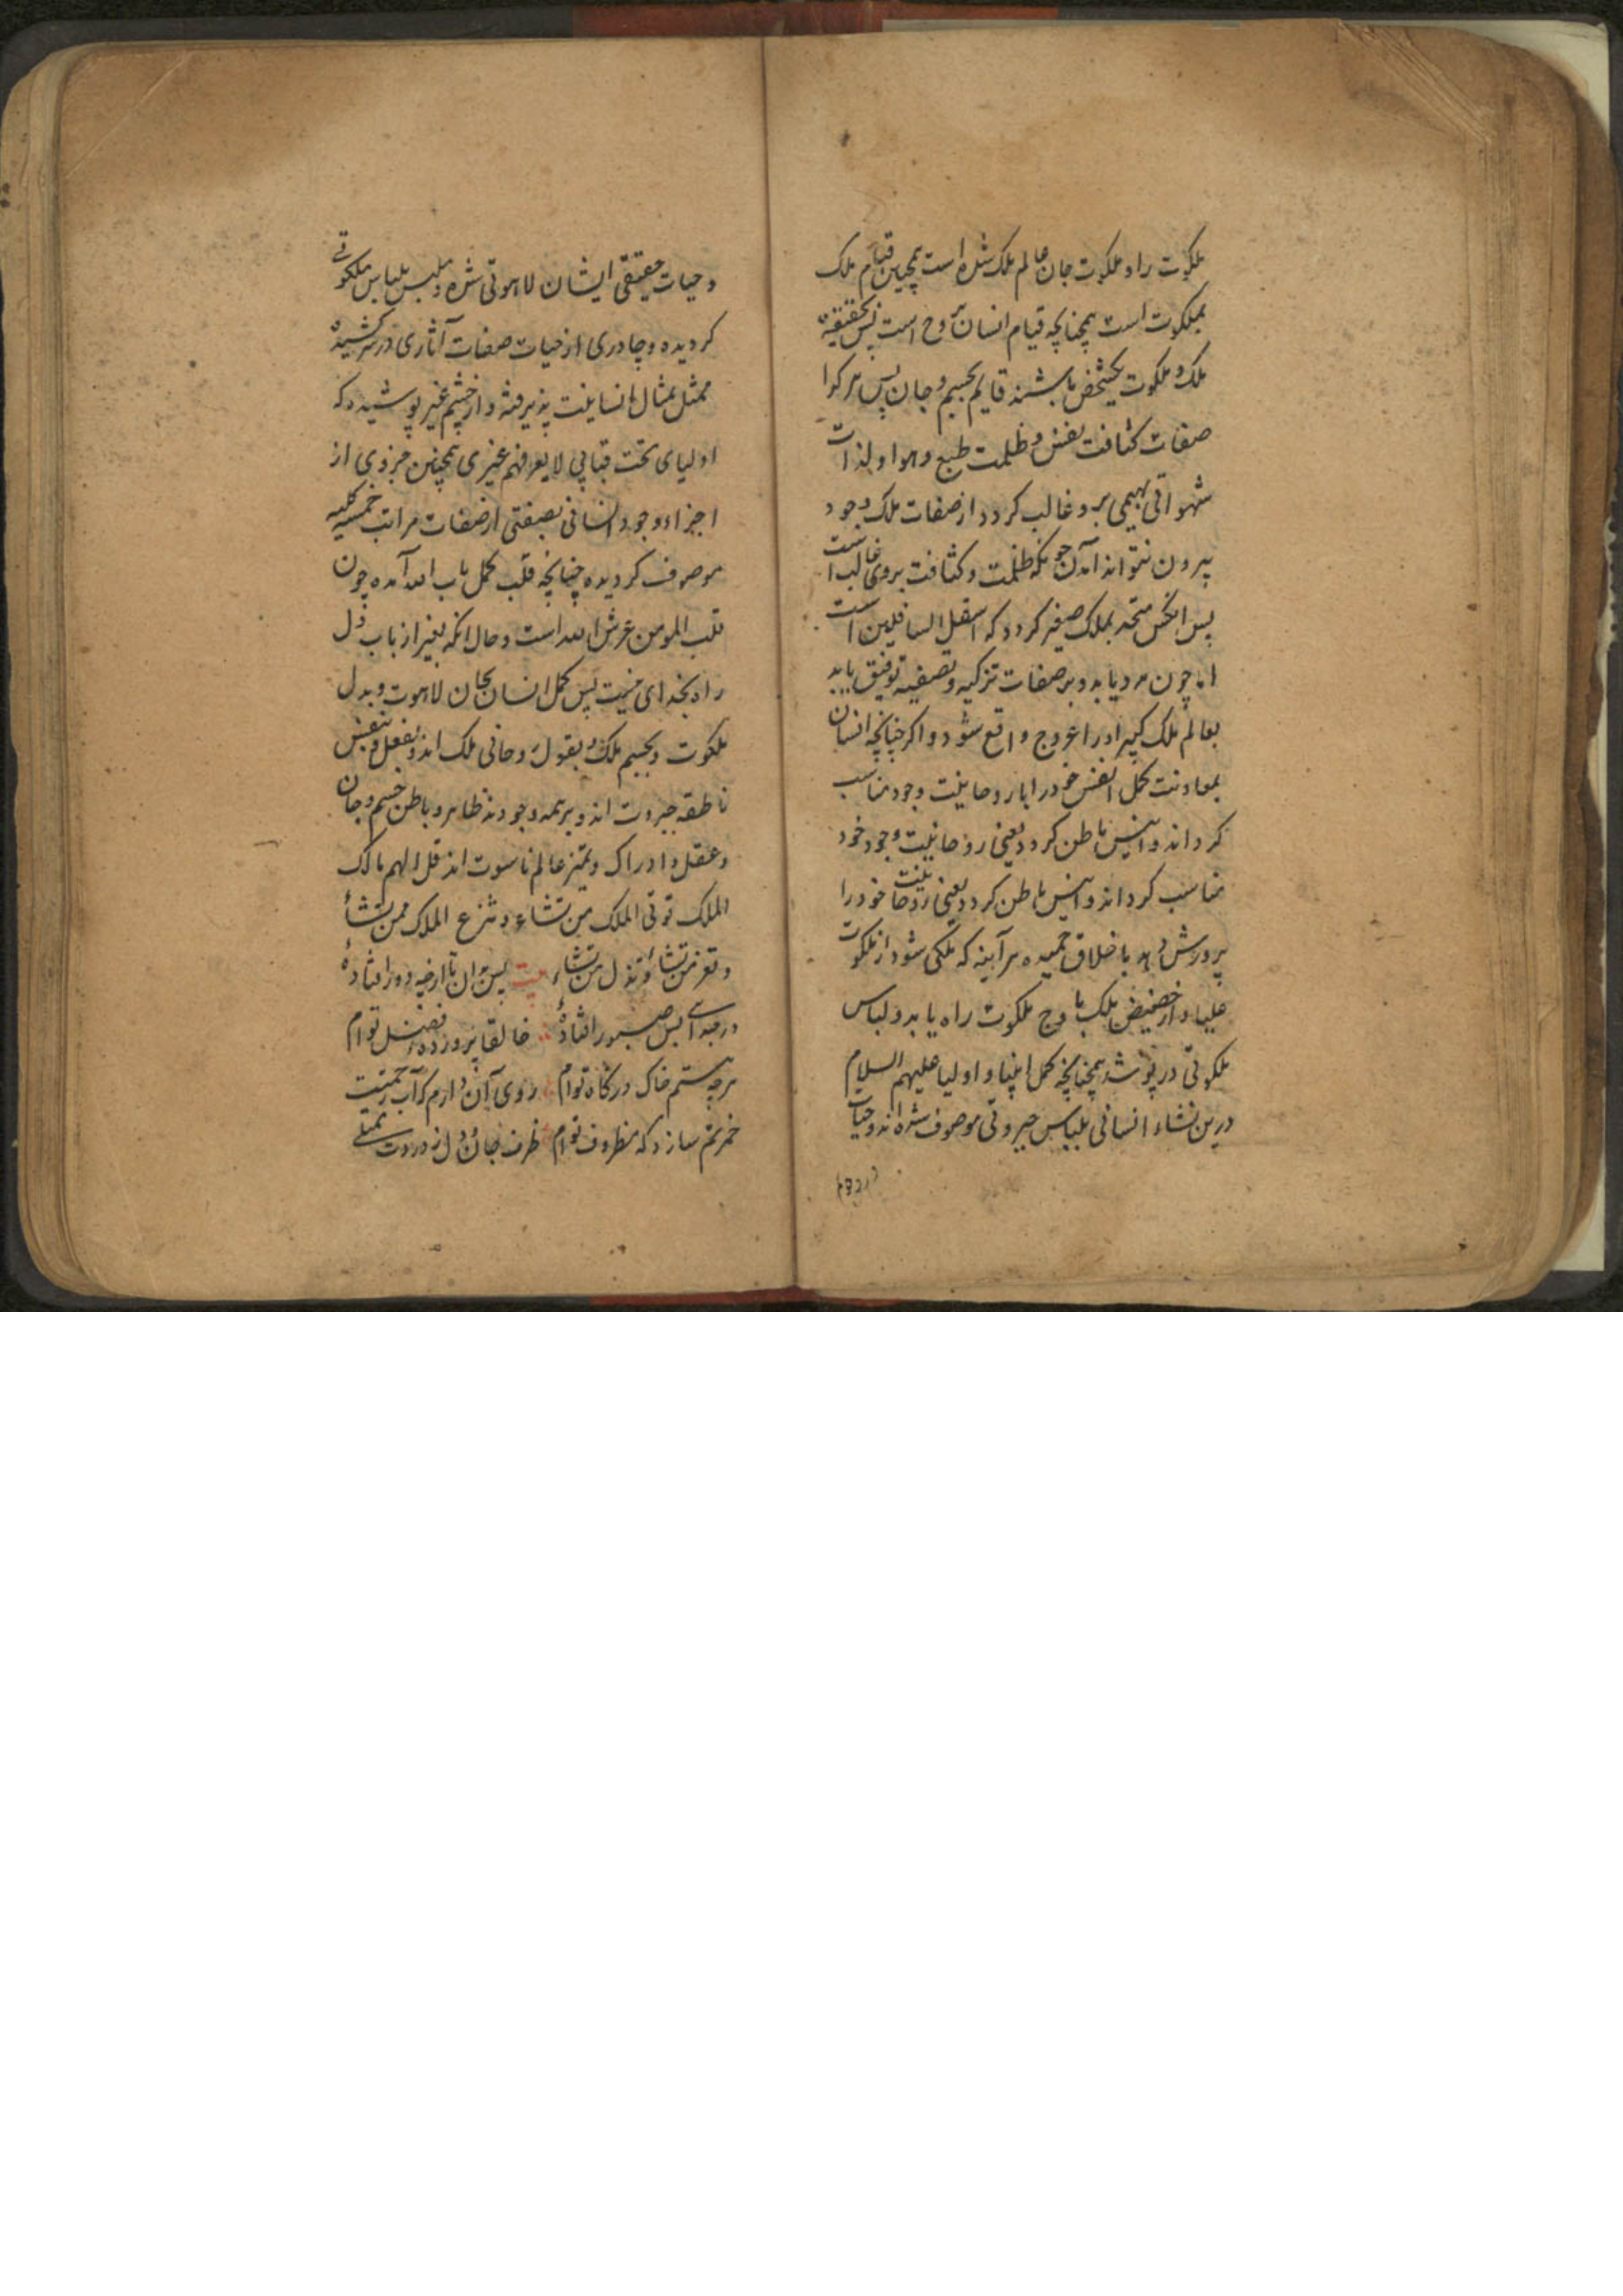 ملکوت را و ملکوت جان عالم ملک شده است همچنین قیام ملک
بملکوت است همچنانچه قیام انسان بروح است پس بحقیقة
ملک و ملکوت یکشخص باشند قایم بجسم و جان پس هر کرا
صفات کثافت نفس و ظلمت طبع و هوا و لذات
شهواتی بهیمی برو غالب کردد از صفات ملک وجود
بیرون نتواند آمدن چونکه ظلمت و کثافت بروی غالب است
پس انکس متحد بملک صغیر کردد که اسفل السافلین است
اما چون مرد یابد و بر صفات تزکیه و تصفیه توفیق یابد
بعالم ملک کبیر او را عروج واقع شود و اکر چنانچه انسان
بمعاونت کمل انفس خود را با روحانیت وجود مناسب
کرداند و انیس باطن کردد یعنی روحانیت وجود خود
مناسب کرداند و انیس باطن کردد یعنی روحانیت خود را
پرورش دهد باخلاق حمیده هر آینه که ملکی شود از ملکوت
علیا و از حضیض ملک باوج ملکوت راه یابد و لباس
ملکوتی در پوشد همچنانچه کمل انبیا و اولیا علیهم السلام
درین نشاء انسانی بلباس جبروتی موصوف شده اند و حیات
و حیات حقیقی ایشان لاهوتی شده و ملبس بلباس ملکوتی
کردیده و چادری از حیات صفات آثاری در سر کشیده
ممثل بمثال انسانیت پذیرفته و از چشم غیر پوشیده که
اولیای تحت قبابی لا یعرفهم غیری همچنین جزوی از
اجزاء وجود انسانی بصفتی از صفات مراتب خمسه کلیه
موصوف کردیده چنانچه قلب کمل باب الله آمده چون
قلب المومن عرش الله است و حال انکه بغیر از باب دل
راه بخدای نیست پس کمل انسان بجان لاهوت و بدل
ملکوت و بجسم ملک و بقول روحانی ملک اند و بفعل و بنفس
ناطقه جبروت اند و بر همه وجودند ظاهر و باطن جسم و جان
و عقل و ادراک و تمیز عالم ناسوت اند قل الهم مالک
الملک توتی الملک من تشاء و تنزع الملک ممن تشاء
و تعز من تشاء و تذل من تشاء بیت پس ان تا ارچه دور افتاده
در چه ابلیس صبور افتاده خالقا پرورده فضل توام
هرچه هستم خاک درکاه توام روی آن دارم کر آب رحمتت
خرمم سازد که مظروف توام ظرف جان و دل ز دردت ممتلی